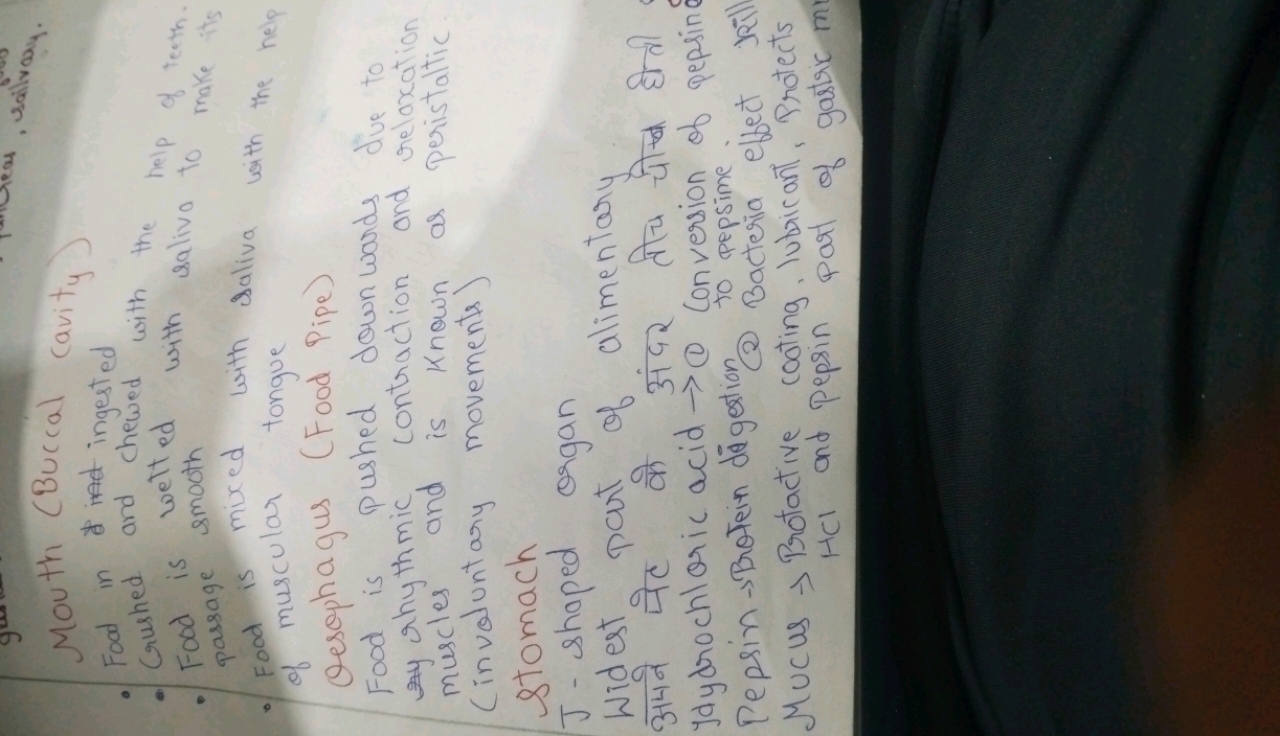 Mouth (Buccal Cavity)
Food in ingested
Crushed and chewed with the help of teeth.
Food is wetted with saliva to make its
passage smooth
Food is mixed with saliva with the help
of muscular tongue
Oesophagus (Food Pipe)
Food is pushed downwards due to
rhythmic contraction and relaxation
muscles and is known as peristaltic
(involuntary movements)
Stomach
J-shaped organ
Widest part of alimentary
अपने पेट के अंदर तीन चीज होती
ydydrochloric acid → ① Conversion of pepsino
to pepsime.
Pepsin → Protein digestion ② Bacteria effect kill
Mucus → Protactive coating, lubicant, Protects
HCl and pepsin part of gastric mu